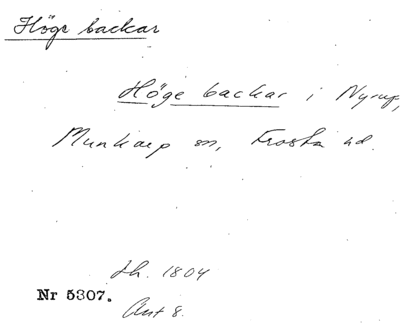 Höge backar
Höge backar i Nyrup,
Munkarp sn, Frosta hd.
Lh. 1804
Nr 5307.
Ant 8.